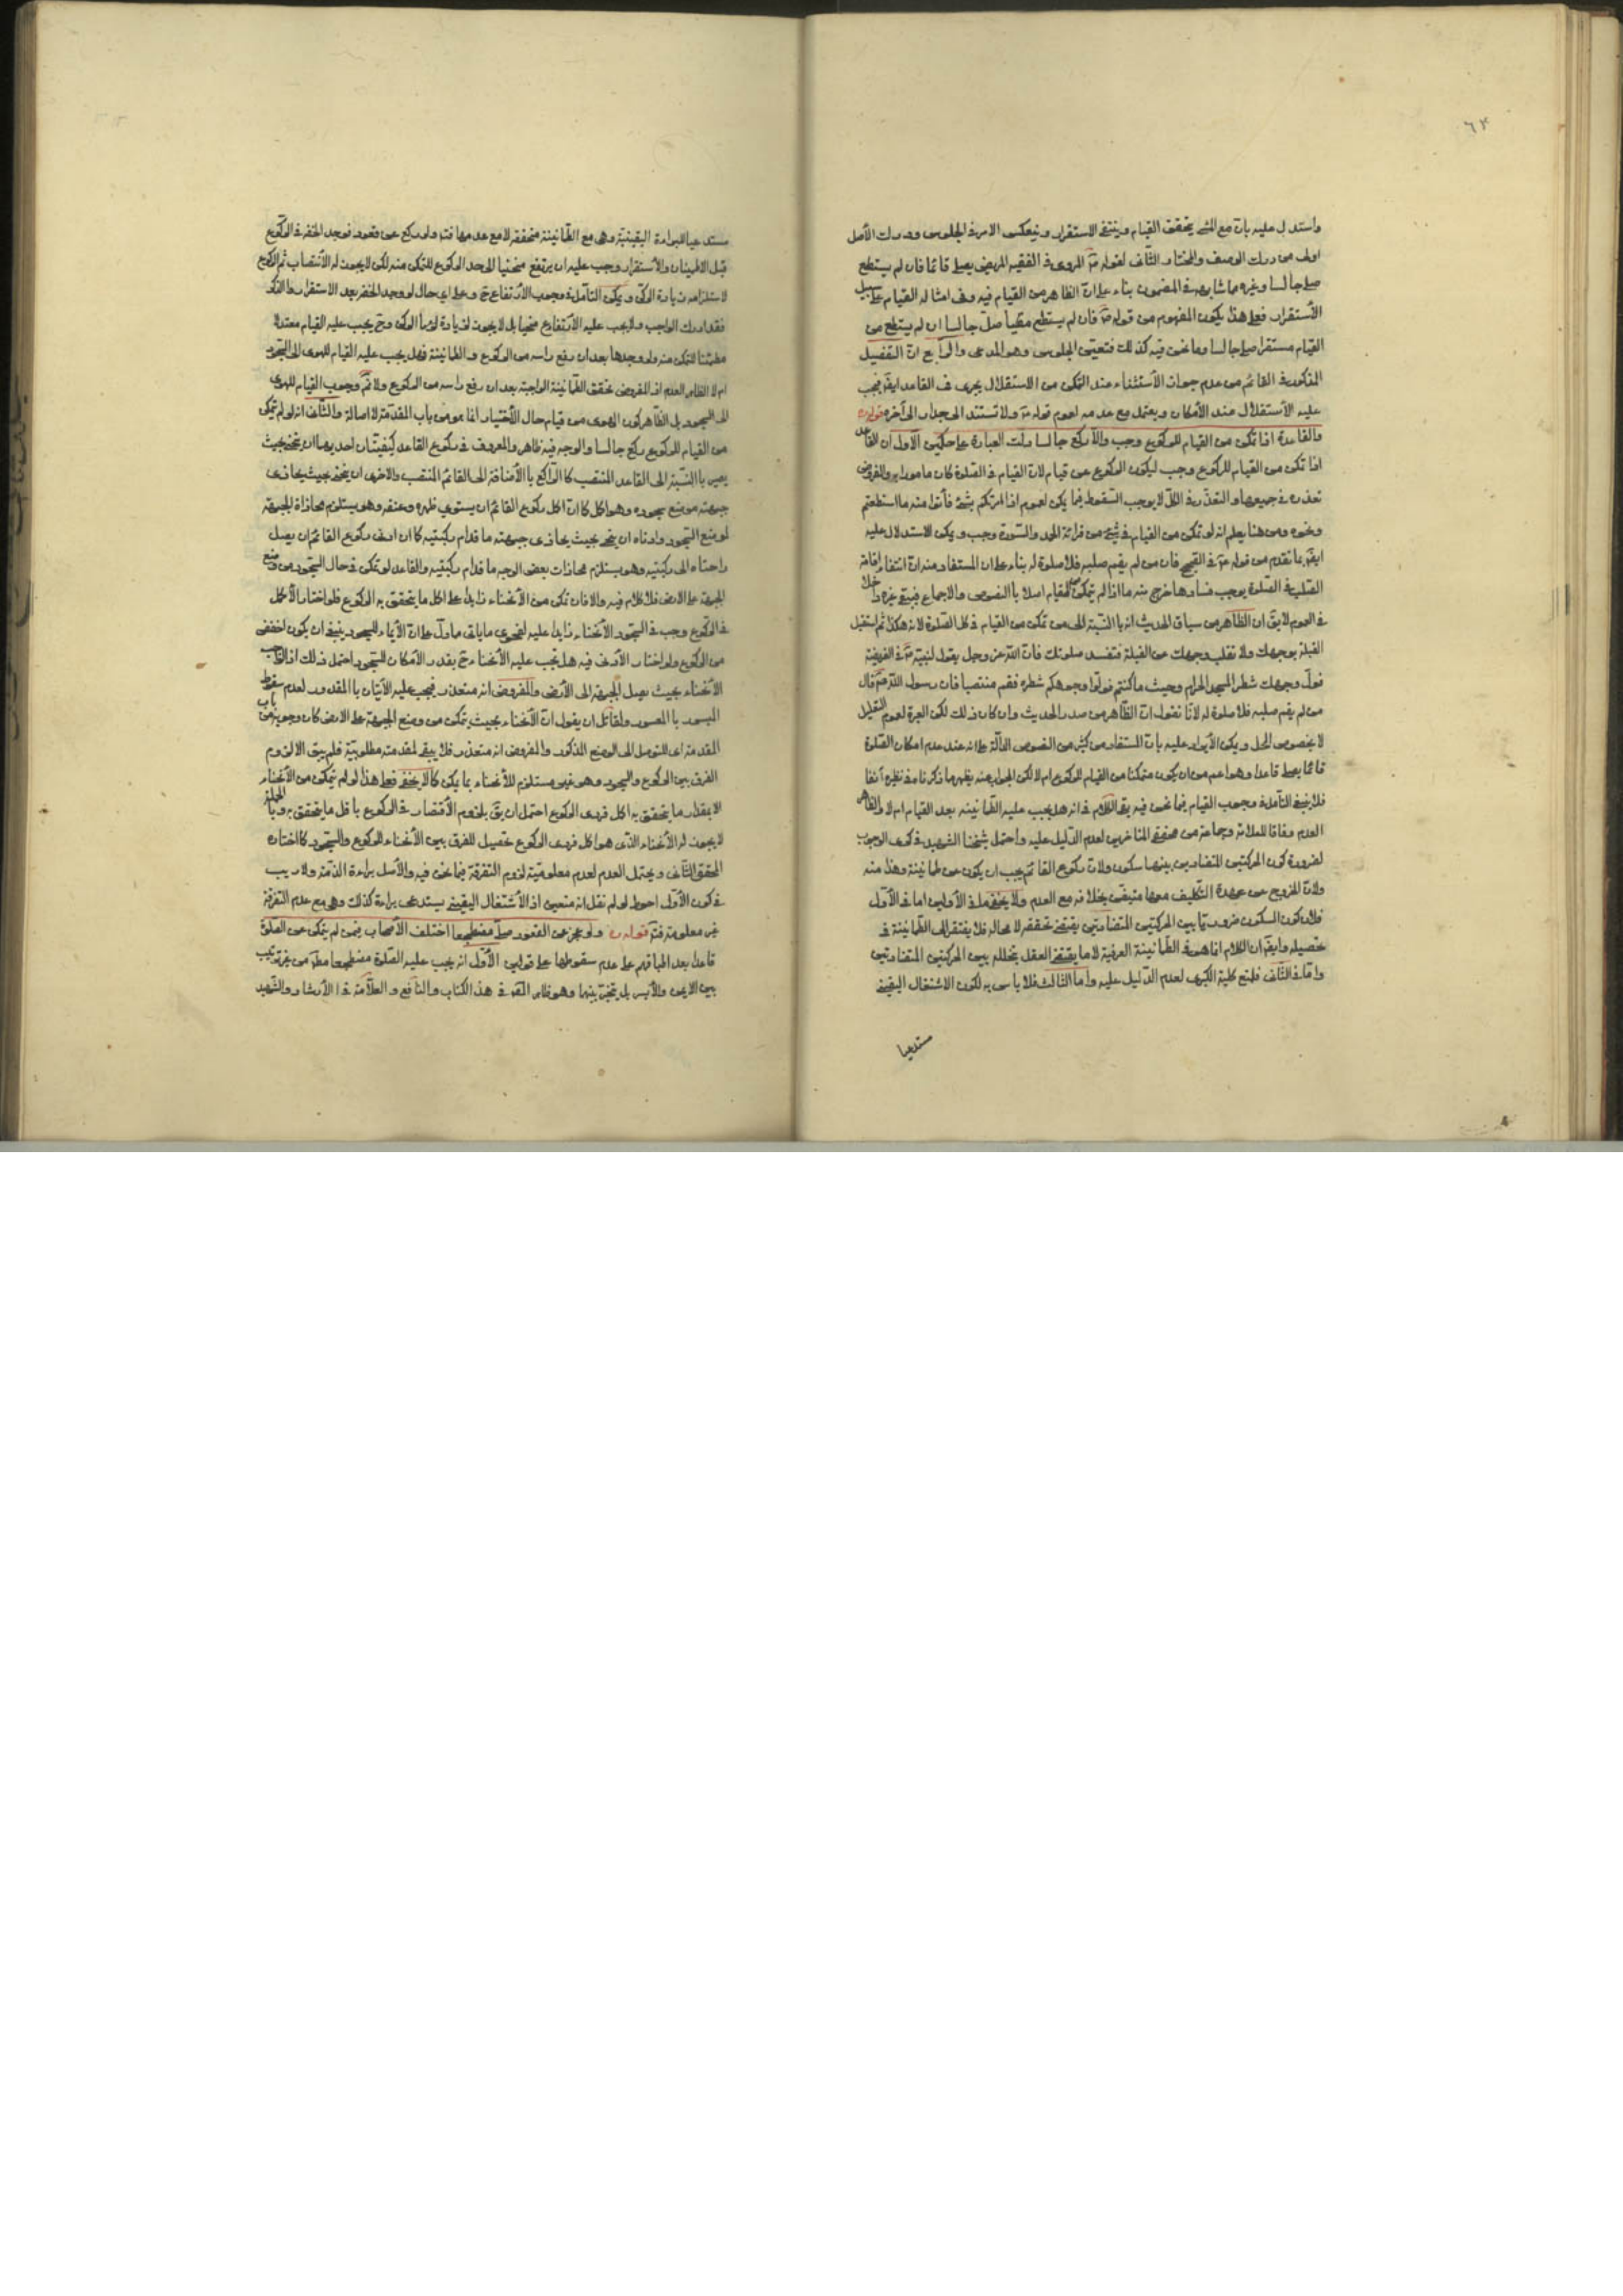 ٦٣
واستدل عليه بان مع المشي يتحقق القيام وينتفى الاستقرار وينعكس الامر في الجلوس ودرك الأصل
اولى من درك الوصف والمختار الثانى لقوله المروى فى الفقيه المريض يصلى قائما فان لم يستطع
صلى جالسا وغيره مما شابهه فى المضمون بناء على ان الظاهر من القيام فيه وفى امثاله القيام على سبيل
الأستقرار فعلى هذا يكون المفهوم من قوله فان لم يستطع صلى جالسا ان لم يستطع من
القيام مستقرا صلى جالسا وما نحن فيه كذلك فتعين الجلوس وهو المدعى والرابع ان التفصيل
المذكور فى القائم من عدم جواز الأستناد عند التمكن من الاستقلال يجرى فى القاعد ايضا فيجب
عليه الأستقلال عند الأمكان ويحتمل مع عدمه لعموم قوله ولا تستند الى جدار الى آخره قوله
والقاعد اذا تمكن من القيام للركوع وجب والا ركع جالسا دلت العبارة على حكمين الأول ان القاعد
اذا تمكن من القيام للركوع وجب ليكون الركوع عن قيام لان القيام فى الصلوة كان مامورا به والمفروض
تعذره فى جميعها والتعذر فى الكل لا يوجب السقوط فيما يمكن لعموم اذا امرتكم بشئ فأتوا منه ما استطعتم
ونحوه ومن هنا يعلم انه لو تمكن من القيام فى شئ من قرائة الحمد والسورة وجب ويمكن الاستدلال عليه
ايضا بما تقدم من قوله فى الصحيح فان من لم يقم صلبه فلا صلوة له بناء على ان المستفاد منه ان انتفاء اقامة
الصلب فى الصلوة يوجب فسادها خرج منه ما اذا لم يتمكن من القيام اصلا بالنصوص والاجماع فيبقى غيره داخلا
فى العموم لا يق ان الظاهر من سياق الحديث انه بالنسبة الى من تمكن من القيام فى كل الصلوة لانه هكذا ثم استقبل
القبلة بوجهك ولا تقلب وجهك عن القبلة فتفسد صلوتك فان الله عز وجل يقول لنبيه فى الفريضة
فول وجهك شطر المسجد الحرام وحيث ما كنتم فولوا وجوهكم شطره فقم منتصبا فان رسول الله قال
من لم يقم صلبه فلا صلوة له لانا نقول ان الظاهر من صدر الحديث وان كان ذلك لكن العبرة لعموم التعليل
لا بخصوص المحل ويمكن الأيراد عليه بان المستفاد من كثير من النصوص الدالة على انه عند عدم امكان الصلوة
قائما يصلى قاعدا وهو اعم من ان يكون متمكنا من القيام للركوع ام لا لكن الجواب عنه يظهر مما ذكرنا فى نظيره آنفا
فلا ينبغى التأمل فى وجوب القيام فيما نحن فيه بقى الكلام فى انه هل يجب عليه الطمأنينه بعد القيام ام لا والظاهر
العدم وفاقا للعلامة وجماعة من محققى المتاخرين لعدم الدليل عليه واحتمل شيخنا الشهيد فى كرى الوجوب
لضرورة كون الحركتين المتضادتين بينهما سكون ولان ركوع القائم يجب ان يكون عن طمانينة وهذا منه
ولان الخروج عن عهدة التكليف معها متيقن بخلافه مع العدم ولا يخفى ما فى الأولين اما فى الأول
فلان كون السكون ضروريا بين الحركتين المتضادتين يقتضى تحققه لا محالة فلا يفتقر الى الطمأنينة فى
تحصيله وايضا ان الكلام انما هو فى الطمأنينة العرفية لا ما يقتضى العقل بتخلله بين الحركتين المتضادتين
واما فى الثانى فلمنع كلية الكبرى لعدم الدليل عليه واما الثالث فلا باس به لكون الاشتغال اليقينى
مستدعيا
مستدعيا للبراءة اليقينية وهى مع الطمأنينة متحققه لا مع عدمها فتم ولو ركع عن قعود فوجد الخفة فى الركوع
قبل الاطمينان والأستقرار وجب عليه ان يرتفع منحنيا الى حد الركوع للتمكن منه لكن لا يجوز له الأنتصاب ثم الركوع
لاستلزامه زيادة الركن ويمكن التأمل فى وجوب الأرتفاع ح وعلى اى حال لو وجد الخفة بعد الاستقرار والذكر
فقد ادرك الواجب ولا يجب عليه الأرتفاع منحنيا بل لا يجوز لزيادة الركن وح يجب عليه القيام معتدلا
مطمئنا للتمكن منه ولو وجدها بعد ان رفع راسه من الركوع والطمأنينة فهل يجب عليه القيام للهوى الى السجود
ام لا الظاهر العدم اذ المفروض تحقق الطمأنينة الواجبة بعد ان رفع راسه من الركوع ولا ثم وجوب القيام للهوى
الى السجود بل الظاهر كون الهوى من قيام حال الأختيار انما هو من باب المقدمة لا اصالة والثانى انه لو لم يتمكن
من القيام للركوع ركع جالسا والوجه فيه ظاهر والمعروف فى ركوع القاعد كيفيتان احديهما ان ينحنى بحيث
يصير بالنسبة الى القاعد المنتصب كالراكع بالأضافة الى القائم المنتصب والاخرى ان ينحنى بحيث يحاذى
جبهته موضع سجوده وهو اكمل كما ان اكمل ركوع القائم ان يستوي ظهره وعنقه وهو يستلزم محاذاة الجبهة
لموضع السجود وادناه ان ينحنى بحيث يحاذى جبهته ما قدام ركبتيه كما ان ادنى ركوع القائم ان يصل
راحتاه الى ركبتيه وهو يستلزم محاذات بعض الوجه ما قدام ركبتيه والقاعد لو تمكن فى حال السجود من وضع
الجبهة على الارض فلا كلام فيه والا فان تمكن من الأنحناء زايدا على اكمل ما يتحقق به الركوع فلو اختار الأكمل
فى الركوع وجب فى السجود الأنحناء زايدا عليه لفحوى ما ياتى ما دل على ان الأيماء للسجود ينبغى ان يكون اخفض
من الركوع ولو اختار الأدنى فيه هل يجب عليه الأنحناء ح بقدر الأمكان للسجود احتمل ذلك اذ الواجب
الأنحناء بحيث يصل الجبهة الى الأرض والمفروض انه متعذر فيجب عليه الأتيان بالمقدور لعدم سقوط
الميسور بالمعسور ولقائل ان يقول ان الأنحناء بحيث يتمكن من وضع الجبهة على الارض كان وجوبه من باب
المقدمة اى للتوصل الى الوضع المذكور والمفروض انه متعذر فلا يبقى لمقدمته مطلوبية فلم يبق الا لزوم
الفرق بين الركوع والسجود وهو غير مستلزم للأنحناء بما يمكن كما لا يخفى فعلى هذا لو لم يتمكن من الأنحناء
الا بمقدار ما يتحقق به اكمل فردى الركوع احتمل ان يق بلزوم الأقتصار فى الركوع باقل ما يتحقق به وبالجملة
لا يجوز له الأنحناء الذى هو اكمل فردى الركوع تحصيل للفرق بين الأنحناء للركوع والسجود كما اختاره
المحقق الثانى ويحتمل العدم لعدم معلومية لزوم التفرقة فيما نحن فيه والأصل براءة الذمة ولا ريب
فى كون الأول احوط لو لم نقل انه متعين اذ الأشتغال اليقينى يستدعى براءة كذلك وهى مع عدم التفرقة
غير معلومة فتم قوله ولو عجز عن القعود صلى مضطجعا اختلف الأصحاب فيمن لم يتمكن من الصلوة
قاعدا بعد اطباقهم على عدم سقوطها على قولين الأول انه يجب عليه الصلوة مضطجعا مطلقا من غير ترتيب
بين الايمن والأيسر بل يتخير بينهما وهو ظاهر المصنف فى هذا الكتاب والنافع والعلامة فى الأرشاد والشهيد